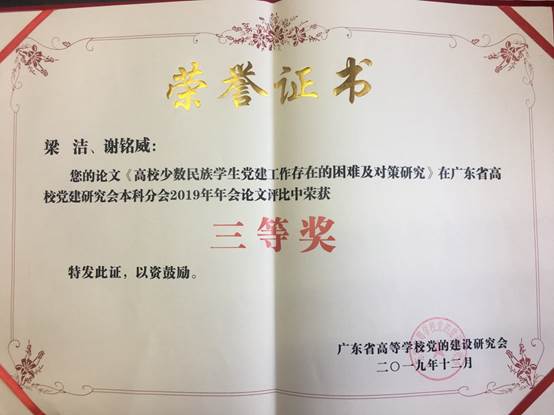 荣誉证书
梁 洁、谢铭威：
您的论文《高校少数民族学生党建工作存在的困难及对策研究》在广东省高
校党建研究会本科分会2019年年会论文评比中荣获
三等奖
特发此证，以资鼓励。
广东省高等学校党的建设研究会
二〇一九年十二月